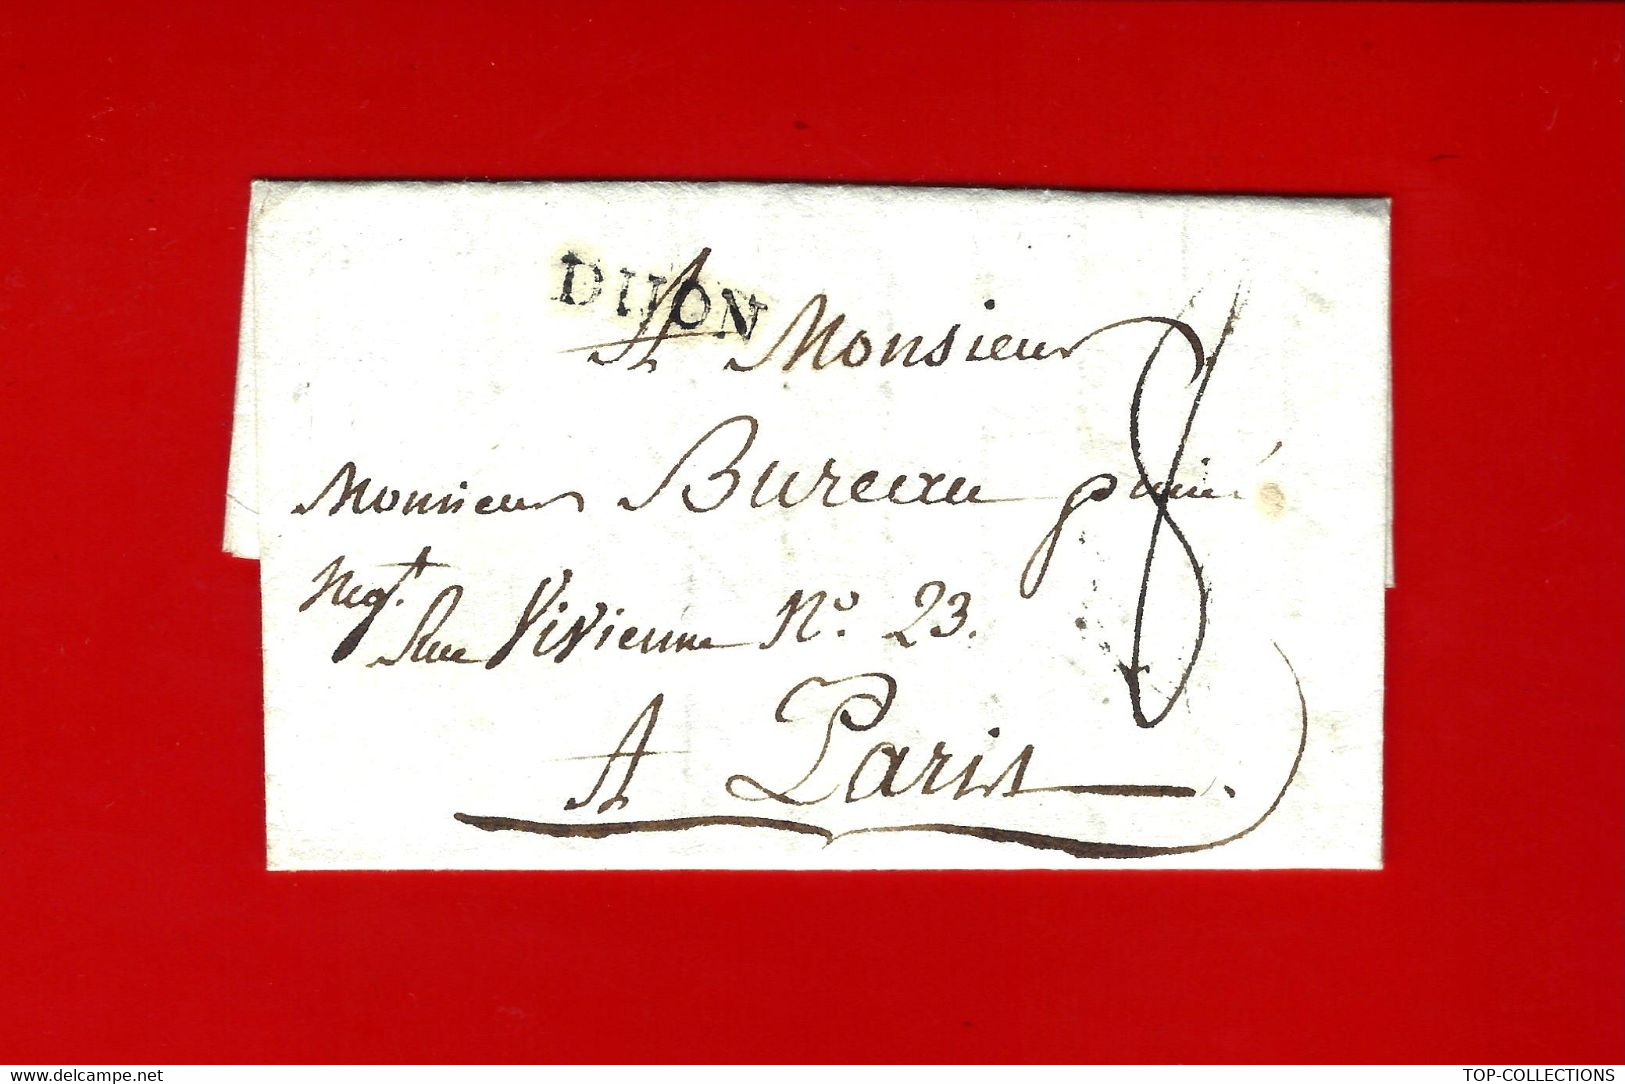 DIJON
A Monsieur
Monsieur Bureau
Negt.
Rue Vivienne No. 23.
A Paris
8
TOP-COLLECTIONS
delcampe.net